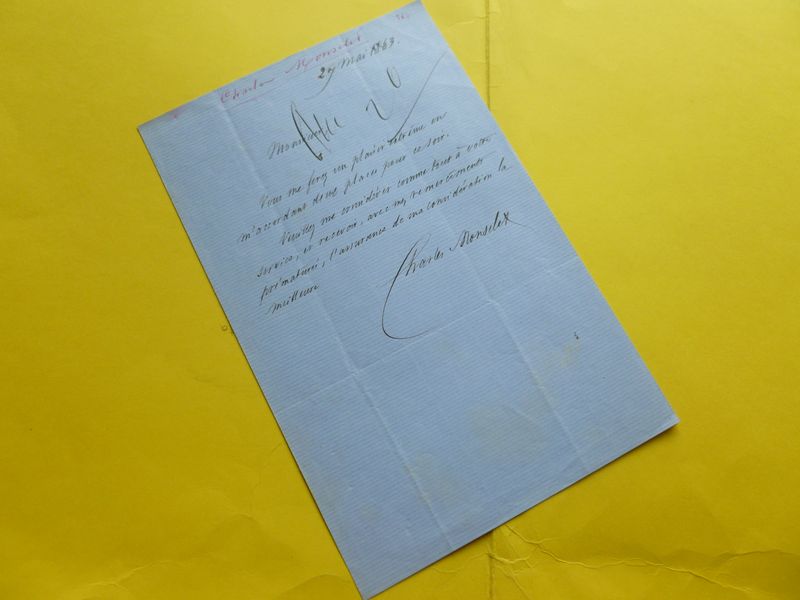 Charles Monselet
27 Mai 1863.
Monsieur
Vous me ferez un plaisir extrême en
m'accordant deux places pour ce soir.
Veuillez me considérer comme tout à votre
service, et recevoir, avec mes remerciements
prématurés, l'assurance de ma considération la
meilleure
Charles Monselet